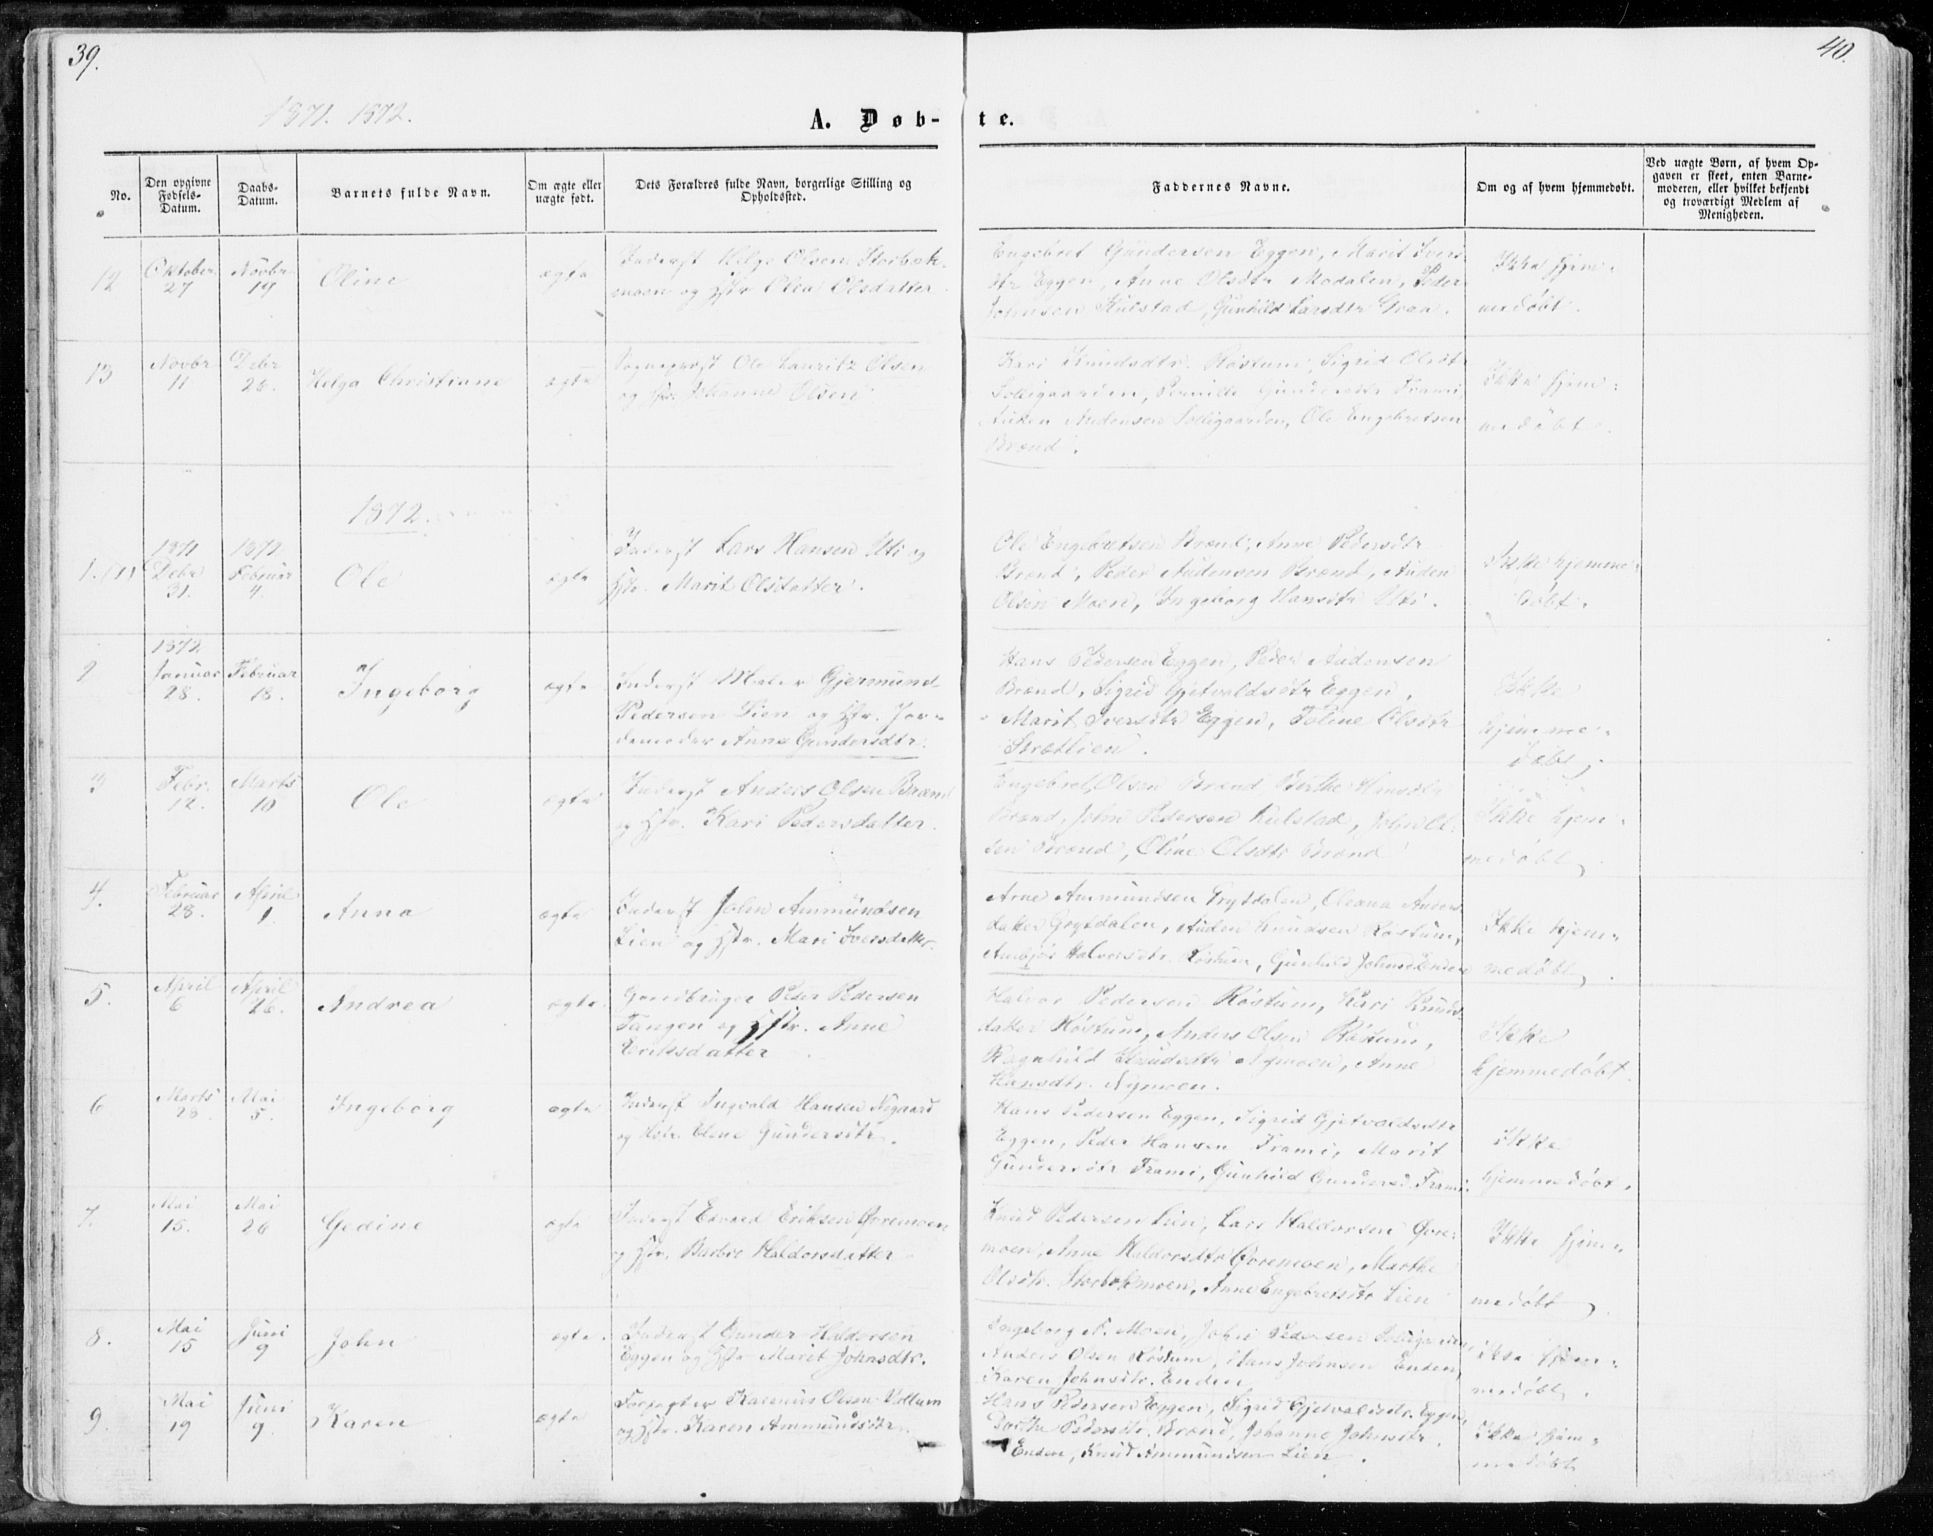 39.
40.
1871. 1872.
A. Døb-
te.
No.
Den opgivne
Fødsels-
Datum.
Daabs-
Datum.
Barnets fulde Navn.
Om ægte eller
uægte født.
Dets Forældres fulde Navn, borgerlige Stilling og
Opholdssted.
Faddernes Navne.
Om og af hvem hjemmedøbt.
Ved uægte Børn, af hvem Op-
gaven er skeet, enten Barne-
moderen, eller hvilket bekjendt
og troværdigt Medlem af
Menigheden.
12
Oktober
27
Novbr
19
Oline
ægte
Inderst Helge Olsen Storbæk-
moen og Hstr Olea Olsdatter
Engebret Gundersen Eggen, Marit Ivers-
dtr Eggen, Anne Olsdtr Modalen, Peder
Johnsen Kulstad, Gunhild Larsdtr
Ikke hjem-
medøbt.
13
Novbr
11
Debr
26.
Helga Christiane
ægte
Sogneprest Ole Lauritz Olsen
og Hstr. Johanne Olsen
Kari Knudsdtr. Røstum, Sigrid Olsdt
Solligaarden, Pernille Gundersdtr Trami,
Auden Audensen Solligaarden, Ole Engebretsen
Brænd.
Ikke hjem-
medøbt.
1872.
1. (1)
1871
Debr
31.
1872
Februar
4.
Ole
ægte
Inderst Lars Hansen Uti og
Hstr. Marit Olsdatter.
Ole Engebretsen Brænd, Anne Pedersdtr
Brænd, Peder Audensen Brænd, Auden
Olsen Moen, Ingeborg Hansdtr Uti.
Ikke hjemme-
døbt.
2
1872
Januar
28.
Februar
18.
Ingeborg
ægte
Inderst Maler Gjermund
Pedersen Lien og Hstr. Jor-
demoder Anne Gundersdtr.
Hans Pedersen Eggen, Peder Audensen
Brænd, Sigrid Gjetvaldsdtr Eggen,
Marit Iversdtr Eggen, Toline Olsdtr
Ikke
hjemme-
døbt
3
Febr.
12.
Marts
10
Ole
ægte
Inderst Anders Olsen Brænd
og Hstr. Kari Pedersdatter.
Engebret Olsen Brænd, Birthe Hansdtr
Brænd, John Pedersen Kulstad, John Ol-
sen Brænd, Oline Olsdtr Brænd
Ikke hjem-
medøbt
4.
Februar
28.
April
1
Anna
ægte
Inderst John Ammundsen
Lien og Hstr. Mari Iversdatter.
Arne Ammundsen Grytdalen, Oleana Anders-
datter Grytdalen, Auden Knudsen Røstum,
Ambjør Halvorsdtr. Røstum, Gunhild Johnsd Enden
Ikke hjem-
medøbt
5.
April
6
April
26.
Andrea
ægte.
Gaardbruger Peder Pedersen
Tangen og Hstr. Anne
Eriksdatter
Halvor Pedersen Røstum, Kari Knuds-
datter Røstum, Anders Olsen Røstum,
Ragnhild Knudsdtr Nymoen, Anne
Hansdtr. Nymoen.
Ikke
hjemmedøbt.
6
Marts
28
Mai
5.
Ingeborg
ægte
Inderst Ingvald Hansen Nygaard
og Hstr. Olene Gundersdtr.
Hans Pedersen Eggen, Sigrid Gjetvaldsdtr
Eggen, Peder Hansen Trami, Marit
Gundersdtr Trami, Gunhild Gundersd. Trami.
Ikke
hjemmedøbt.
7.
Mai
15.
Mai
26
Gedine
ægte
Inderst Edvard Eriksen Øvremoen
og Hstr. Barbro Haldorsdatter
Knud Pedersen Lien, Lars Haldorsen Øvre-
moen, Anne Haldorsdtr Øvremoen, Marthe
Olsdtr. Storbækmoen, Anne Engebretsdtr Lien
Ikke hjem-
medøbt
8.
Mai
15
Juni
9
John
ægte.
Inderst Gunder Haldorsen
Eggen og Hstr Marit Johnsdtr.
Ingeborg N. Moen, John Pedersen Solligarden,
Anders Olsen Røstum, Hans Johnsen Enden,
Karen Johnsdtr. Enden
Ikke hjem-
medøbt.
9.
Mai
19
Juni
9
Karen
ægte
Forpagter Rasmus Olsen Vollum
og Hstr. Karen Ammundsdtr.
Hans Pedersen Eggen, Sigrid Gjetvaldsdtr. Eggen,
Dorthe Pedersdtr. Brænd, Johanne Johnsdtr.
Enden, Knud Ammundsen Lien.
Ikke hjem-
medøbt